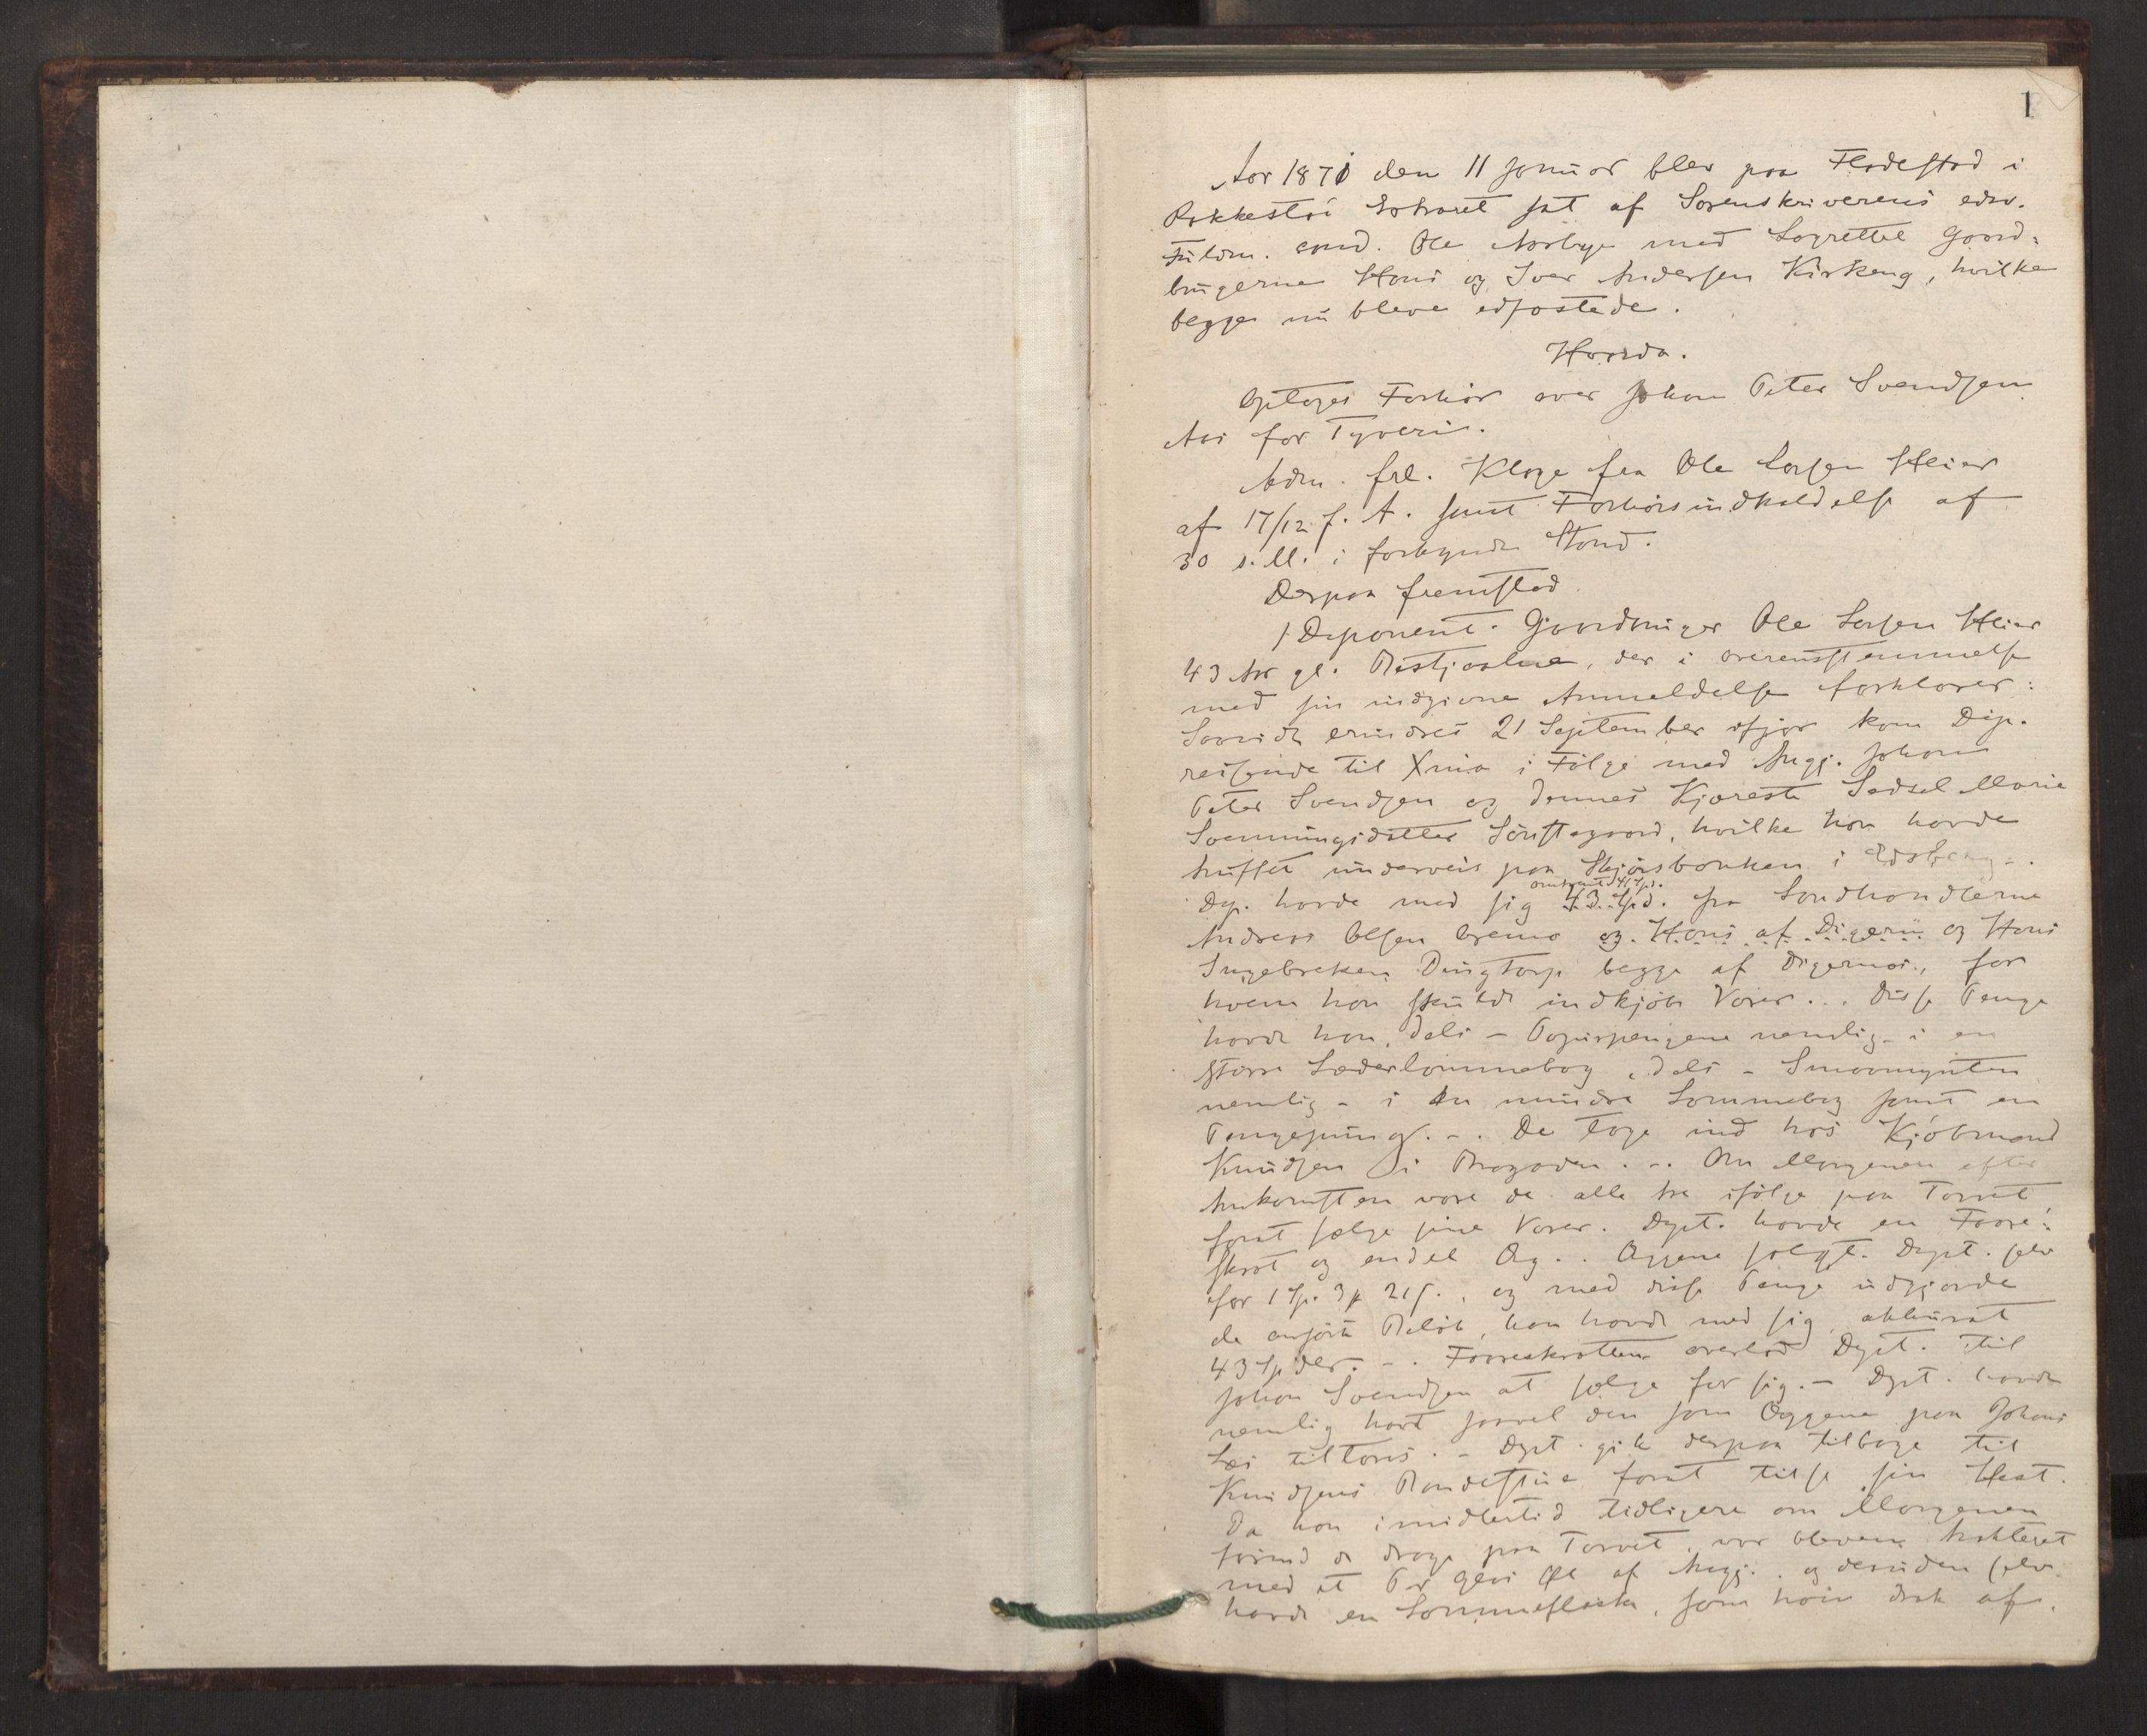 1
Aar 1871 den 11 Januar blev paa Fladestad i
Rakkestad Extraret sat af Sorenskriverens edsv.
Fuldm. cand. Ole Aarbye med Lagrettet Gaard-
brugerne Hans og Iver Andersen Kirkeng, hvilke
begge nu bleve edfæstede.
Hvorda.
Optoges Forhør over Johan Peter Svendsen
Aas for Tyveri.
Adm. frl. Klage fra Ole Larsen Heier
af 17/12 f. A. samt Forhørsindkaldelse af
30 s. M. i forkyndt Stand.
Derpaa fremstod
1 Deponent. Gaardbruger Ole Larsen Heier
43 Aar gl., der i Overensstemmelse
med sin indgivne Anmeldelse forklarer:
Saavidt erindres 21 September ifjor kom Dep.
reisende til Xnia i Følge med Angj. Johan
Peter Svendsen og dennes Kjæreste Sedsel Marie
Svenningsdatter, hvilke han havde
truffet underveis paa Skjørsbanken i Edsberg -.
omtrent 41 Spd.
Dep. havde med sig 43 Spd. fra Landhandlerne
Andreas Olsen Gremo og Hans af Digeru og Hans
Ingebretsen Dingtorp begge af Digernæs, for
hvem han skulde indkjøbe Varer... Disse Penge
havde han, dels – Papirpengene nemlig – i en
større Læderlommebog, dels – Smaamynten
nemlig – i en mindre Lommebog samt en
Pengepung. -. De toge ind hos Kjøbmand
Knudsen i Brogaden. -. Om Morgenen efter
Ankomsten vare de alle tre ifølge paa Torvet
forat sælge sine Varer. Dept. havde en Faare-
skrot og endel Æg.. Æggene solgte Dept. selv
for 1 Sp. 3 ₰ 21 s., og med disse Penge udgjorde
de anførte Beløb, han havde med sig, akkurat
43 Spdlr. -. Faareskrotten overlod Dept. til
Johan Svendsen at sælge for sig. – Dept. havde
nemlig havt saavel den som Æggene paa Johans
Læs tiltorvs. – Dept. gik derpaa tilbage til
Knudsens Bondestue forat tilse sin Hest.
Da han imidlertid tidligere om Morgenen
førend de droge paa Torvet, var bleven trakteret
med et Par Glas Øl af Angj., og desuden selv
havde en Lommeflaske, som han drak af,